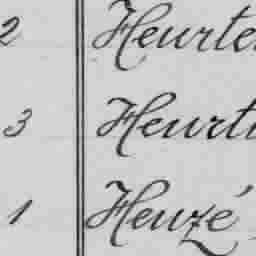 2 Heurte
3 Heurt
1 Heuzé